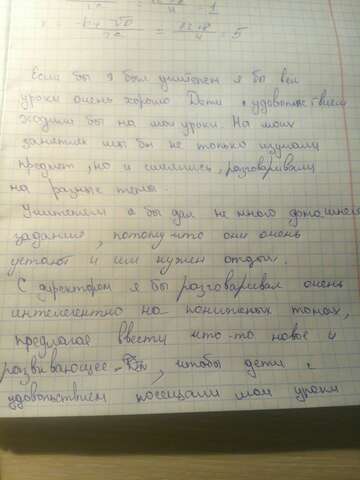 2a 4 1
-b+√D = 12+8 = 5
2a 4
Если бы я был учителем я бы вел
уроки очень хорошо Дети с удовольствием
ходили бы на мои уроки. На моих
занятиях мы бы не только изучали
предмет, но и смеялись, разговаривали
на разные темы.
Учителем я бы дал не много домашнего
задания, потому что они очень
устают и им нужен отдых.
С директором я бы разговаривал очень
интелегентно на пониженых тонах,
предлагае ввести что-то новое и
развивающее, чтобы дети с
удовольствием посещали мои уроки